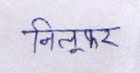 निलूफर